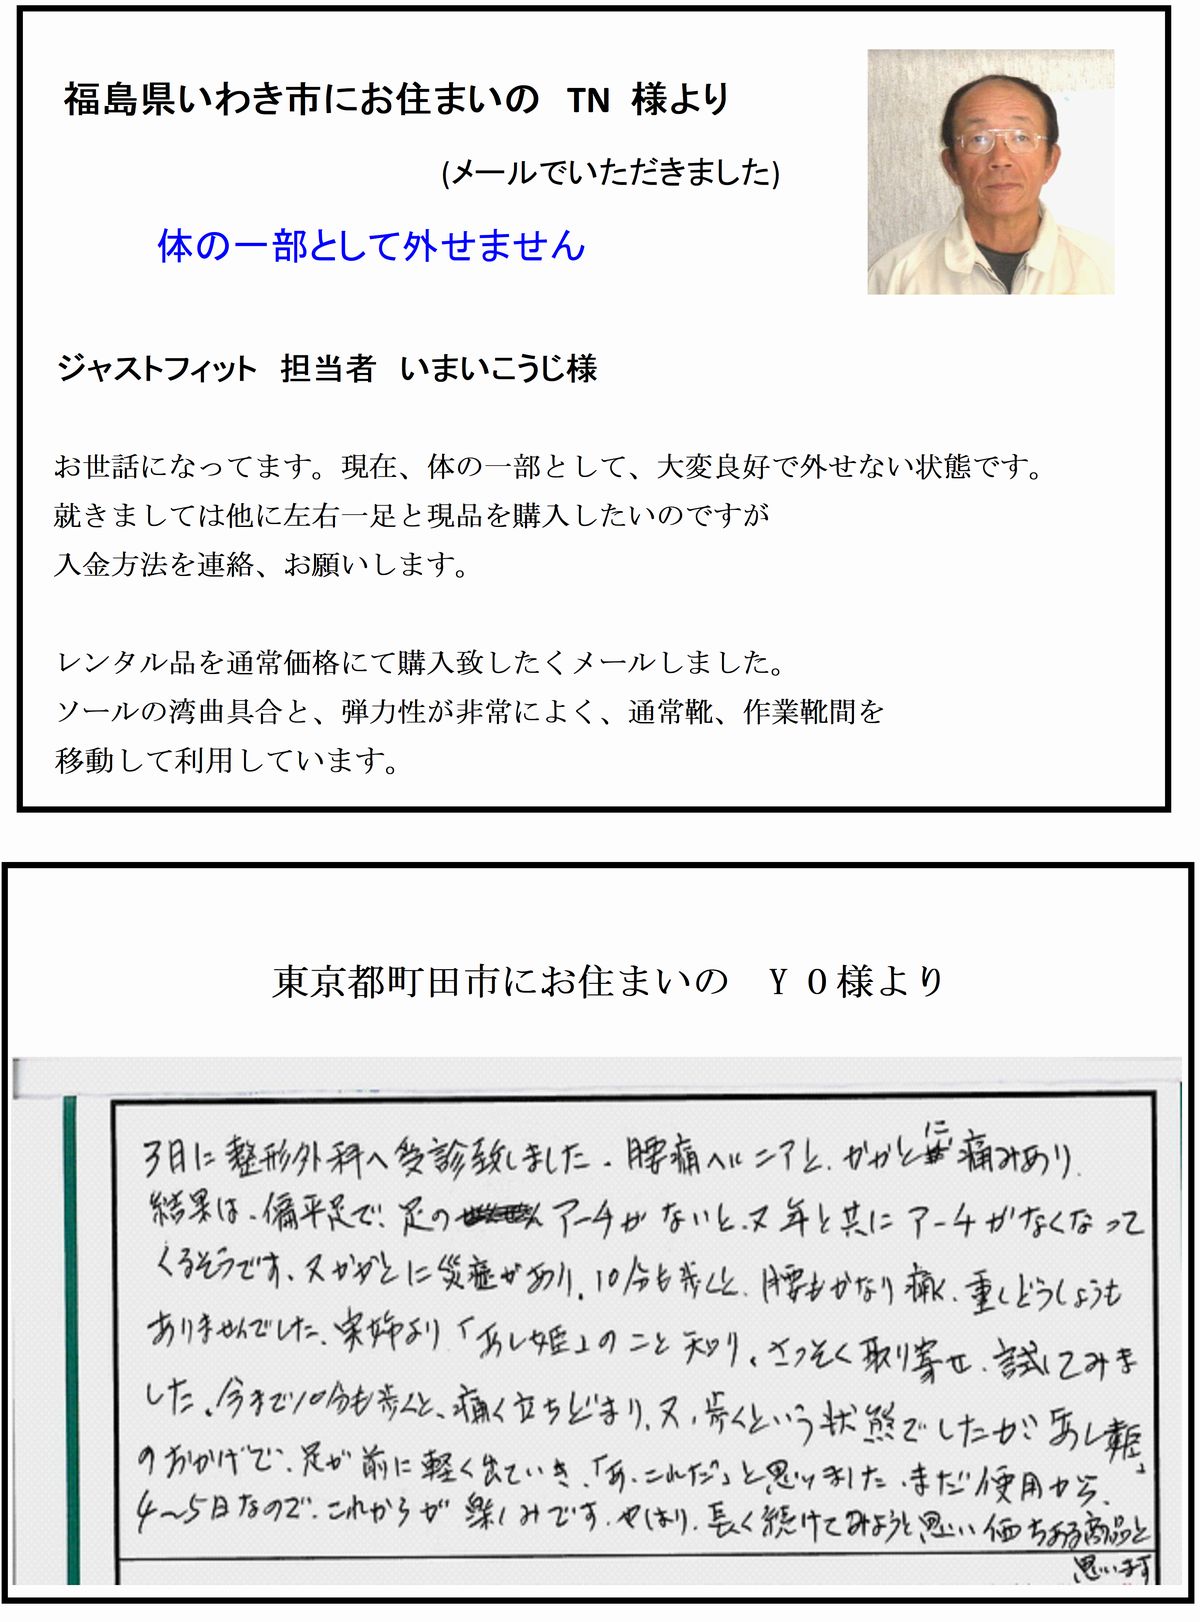 福島県いわき市にお住まいの TN 様より
(メールでいただきました)
体の一部として外せません
ジャストフィット 担当者 いまいこうじ様
お世話になってます。現在、体の一部として、大変良好で外せない状態です。
就きましては他に左右一足と現品を購入したいのですが
入金方法を連絡、お願いします。
レンタル品を通常価格にて購入致したくメールしました。
ソールの湾曲具合と、弾力性が非常によく、通常靴、作業靴間を
移動して利用しています。
東京都町田市にお住まいの ＹＯ様より
3日に整形外科へ受診致しました。腰痛ヘルニアと、かかとに痛みあり、
結果は、偏平足で、足の アーチがないと、又年と共にアーチがなくなって
くるそうです、又かかとに炎症があり、10分も歩くと、腰もかなり痛く、重くどうしようも
ありませんでした、実姉より「あし姫」のこと知り、さっそく取り寄せ、試してみま
した、今まで10分も歩くと、痛く立ちどまり、又、歩くという状態でしたが「あし姫」
のおかげで、足が前に軽く出ていき、「あ、これだ」と思いました、まだ使用から、
4〜5日なので、これからが楽しみです、やはり、長く続けてみようと思い価ちある商品と
思います